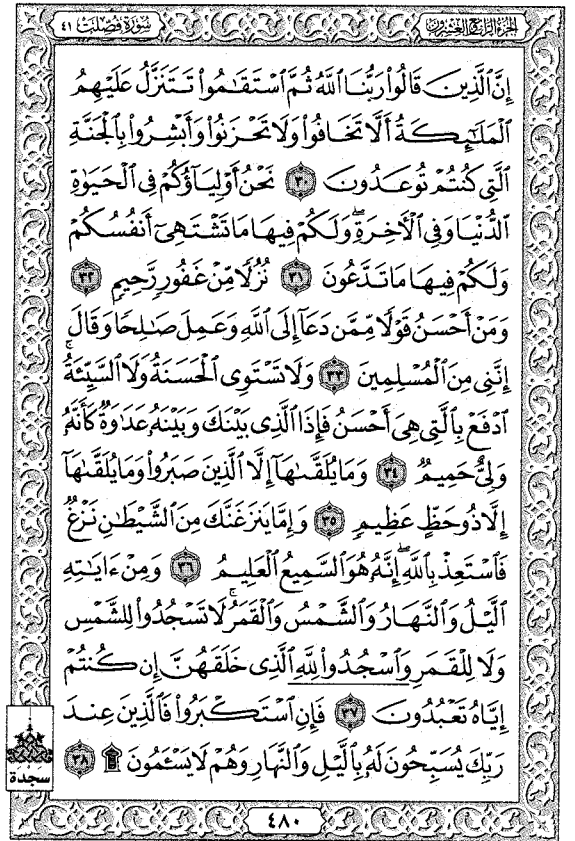 سُورَةُ فُصِّلَتْ ٤١
الجُزْءُ الرَّابِعُ وَالعِشْرُونَ
إِنَّ ٱلَّذِينَ قَالُوا۟ رَبُّنَا ٱللَّهُ ثُمَّ ٱسْتَقَٰمُوا۟ تَتَنَزَّلُ عَلَيْهِمُ
ٱلْمَلَٰٓئِكَةُ أَلَّا تَخَافُوا۟ وَلَا تَحْزَنُوا۟ وَأَبْشِرُوا۟ بِٱلْجَنَّةِ
ٱلَّتِى كُنتُمْ تُوعَدُونَ ٣٠ نَحْنُ أَوْلِيَآؤُكُمْ فِى ٱلْحَيَوٰةِ
ٱلدُّنْيَا وَفِى ٱلْءَاخِرَةِ ۖ وَلَكُمْ فِيهَا مَا تَشْتَهِىٓ أَنفُسُكُمْ
وَلَكُمْ فِيهَا مَا تَدَّعُونَ ٣١ نُزُلًا مِّنْ غَفُورٍ رَّحِيمٍ ٣٢
وَمَنْ أَحْسَنُ قَوْلًا مِّمَّن دَعَآ إِلَى ٱللَّهِ وَعَمِلَ صَٰلِحًا وَقَالَ
إِنَّنِى مِنَ ٱلْمُسْلِمِينَ ٣٣ وَلَا تَسْتَوِى ٱلْحَسَنَةُ وَلَا ٱلسَّيِّئَةُ ۚ
ٱدْفَعْ بِٱلَّتِى هِىَ أَحْسَنُ فَإِذَا ٱلَّذِى بَيْنَكَ وَبَيْنَهُۥ عَدَٰوَةٌ كَأَنَّهُۥ
وَلِىٌّ حَمِيمٌ ٣٤ وَمَا يُلَقَّىٰهَآ إِلَّا ٱلَّذِينَ صَبَرُوا۟ وَمَا يُلَقَّىٰهَآ
إِلَّا ذُو حَظٍّ عَظِيمٍ ٣٥ وَإِمَّا يَنزَغَنَّكَ مِنَ ٱلشَّيْطَٰنِ نَزْغٌ
فَٱسْتَعِذْ بِٱللَّهِ ۖ إِنَّهُۥ هُوَ ٱلسَّمِيعُ ٱلْعَلِيمُ ٣٦ وَمِنْ ءَايَٰتِهِ
ٱلَّيْلُ وَٱلنَّهَارُ وَٱلشَّمْسُ وَٱلْقَمَرُ ۚ لَا تَسْجُدُوا۟ لِلشَّمْسِ
وَلَا لِلْقَمَرِ وَٱسْجُدُوا۟ لِلَّهِ ٱلَّذِى خَلَقَهُنَّ إِن كُنتُمْ
إِيَّاهُ تَعْبُدُونَ ٣٧ فَإِنِ ٱسْتَكْبَرُوا۟ فَٱلَّذِينَ عِندَ
رَبِّكَ يُسَبِّحُونَ لَهُۥ بِٱلَّيْلِ وَٱلنَّهَارِ وَهُمْ لَا يَسْـَٔمُونَ ۩ ٣٨
سجدة
٤٨٠